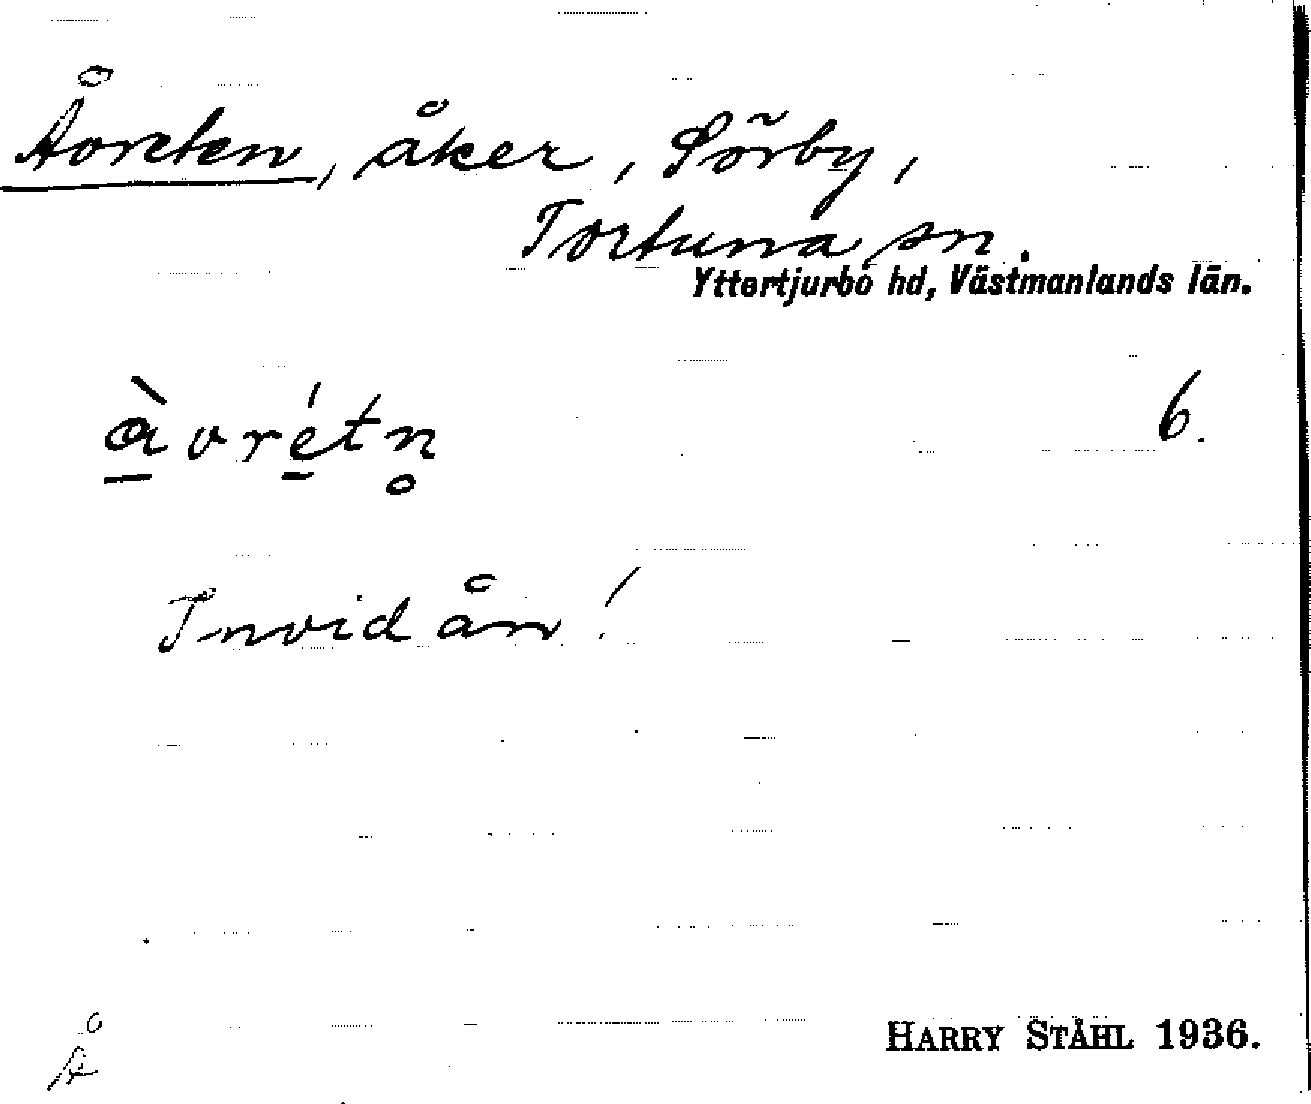 Åvreten, åker, Sörby,
Tortuna sn.
Yttertjurbo hd, Västmanlands län.
à̱vré̱tn̥ 6.
Invid ån!
Å
HARRY STÅHL 1936.